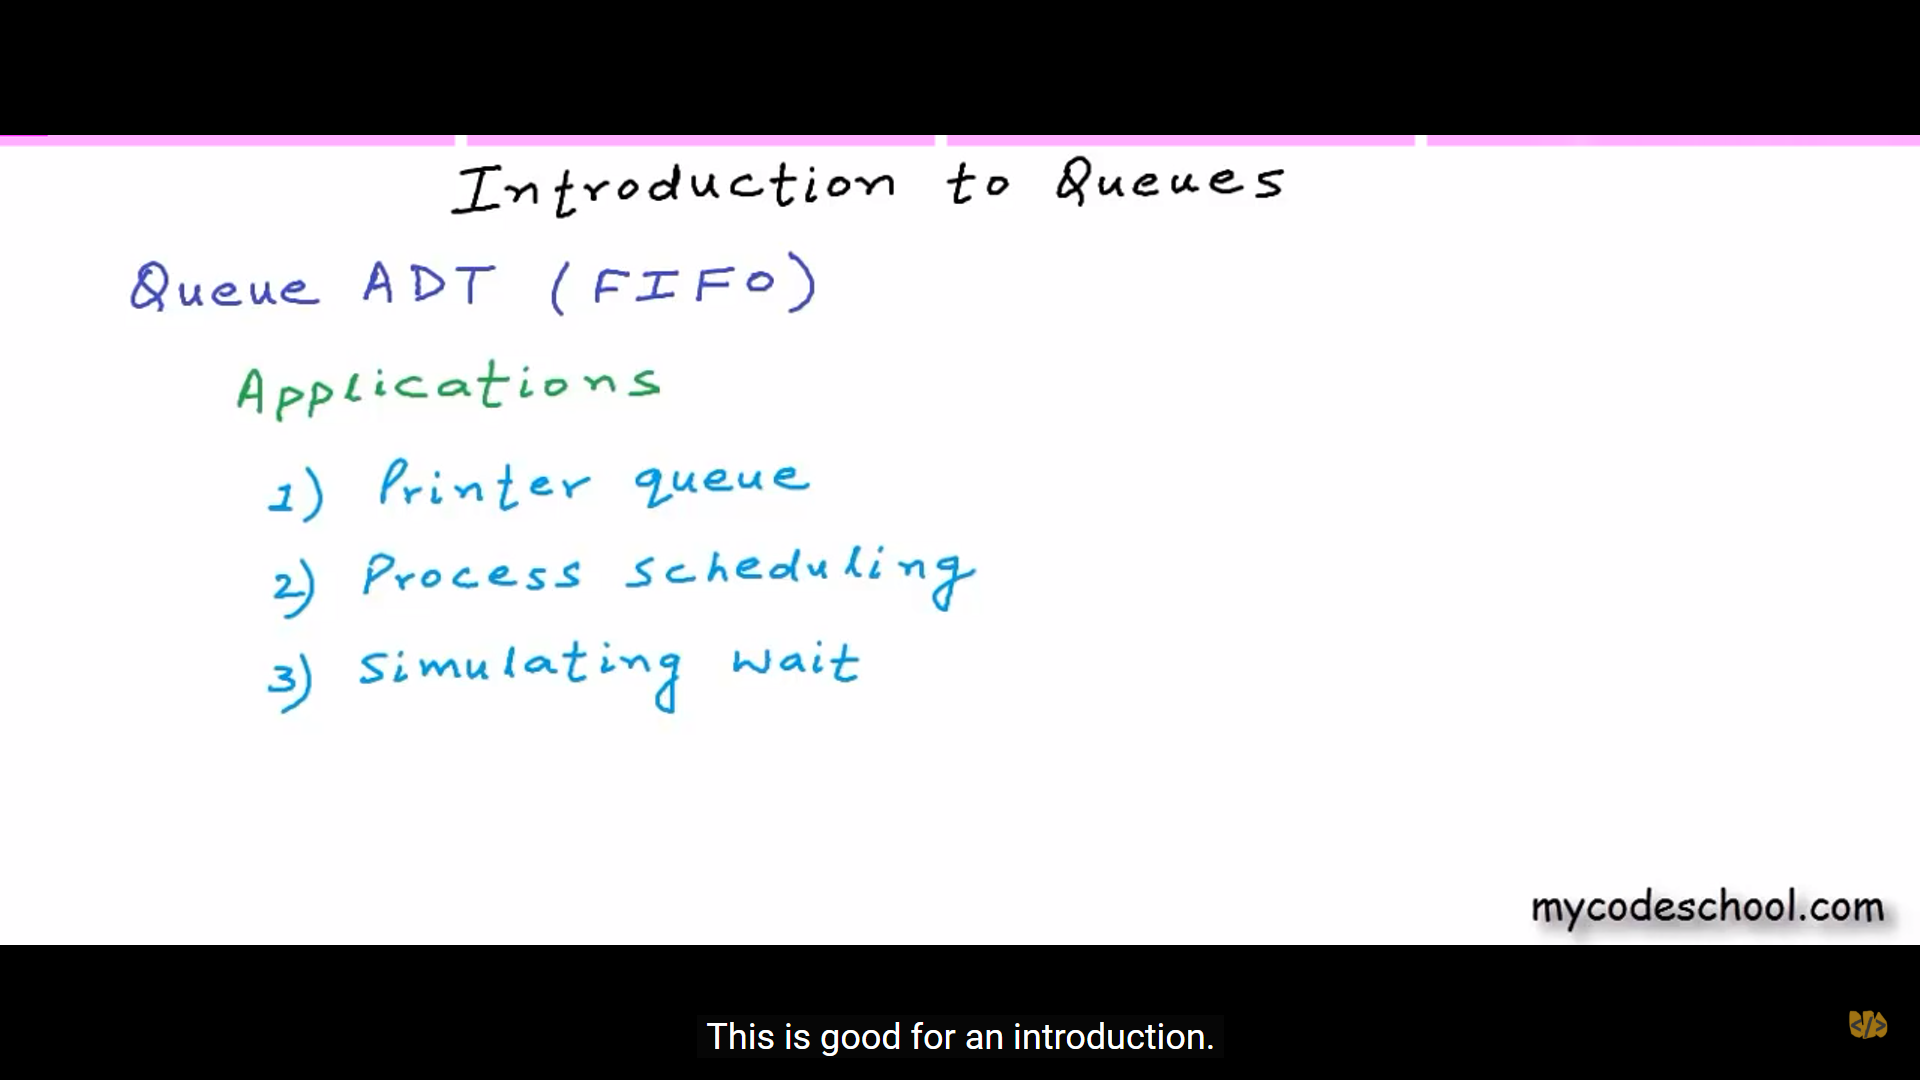 Introduction to Queues
Queue ADT (FIFO)
Applications
1) Printer queue
2) Process scheduling
3) Simulating wait
mycodeschool.com
This is good for an introduction.